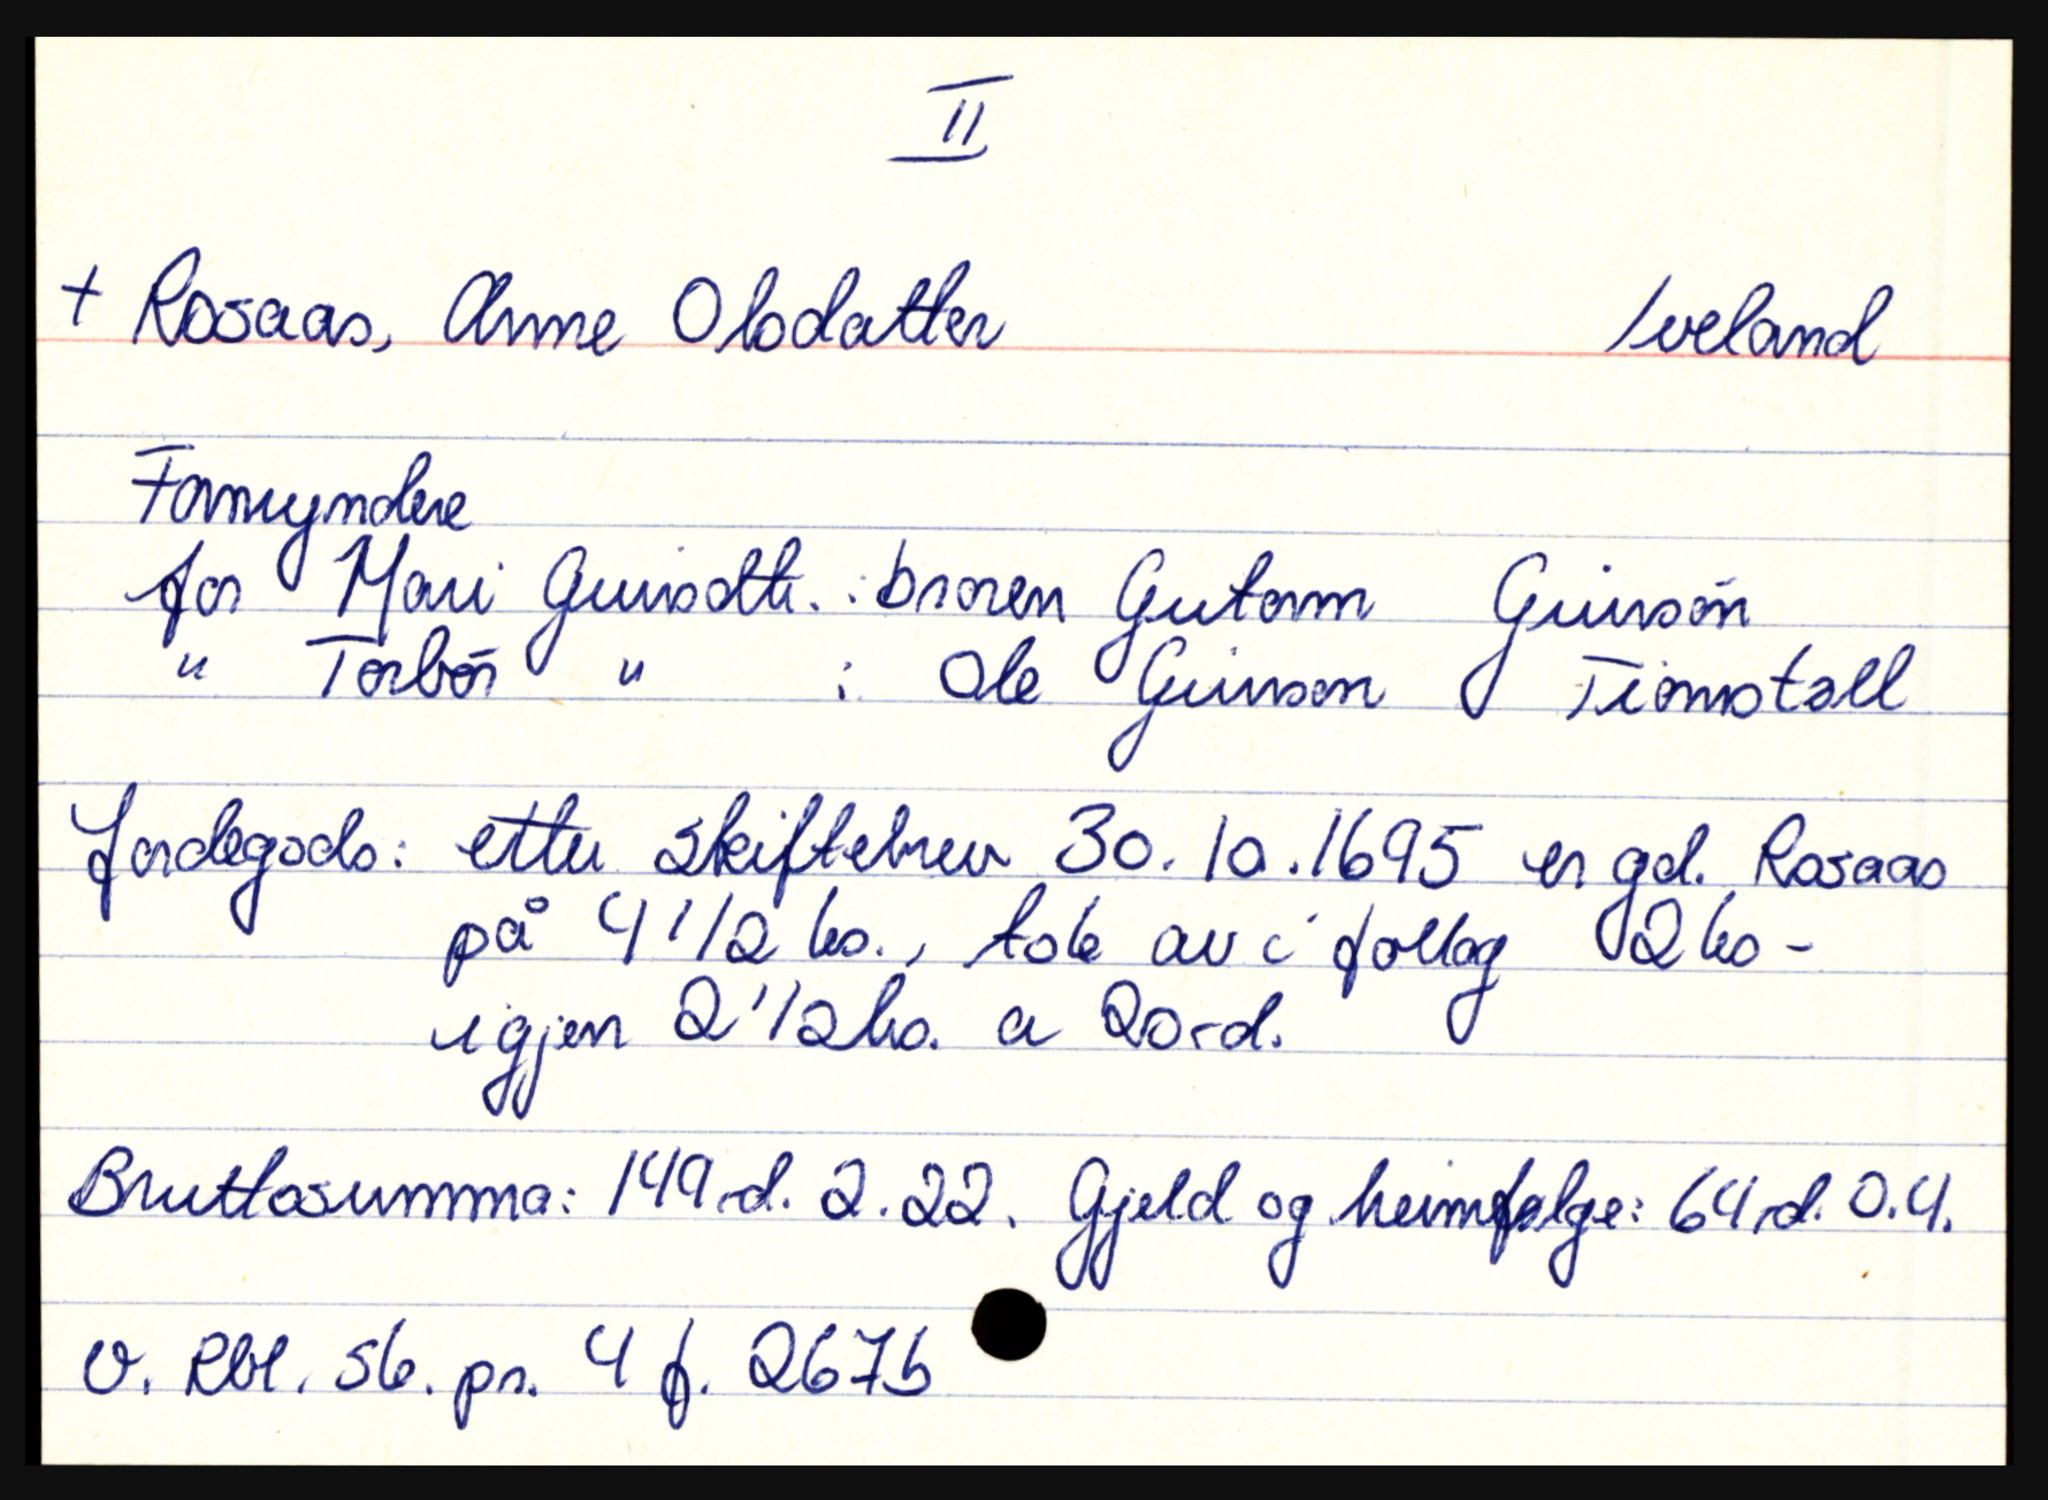 II
+ Rosaas, Anne Olsdatter Iveland
Formyndere
for Mari Guirsdtr. : broren Gutorm Guirsøn
" Torbør " : Ole Guirson Tiomstøll
Jordegods: etter skiftebrev 30.10.1695 er gd. Rosaas
på 4 1/2 hs., tok av i follog 2 hs -
igjen 2 1/2 hs. a 20 rd.
Bruttosumma: 149 rd. 2.22. Gjeld og heimfølge: 64 rd. 0.4.
v. Rbl. sk. pr. 4 f. 267b